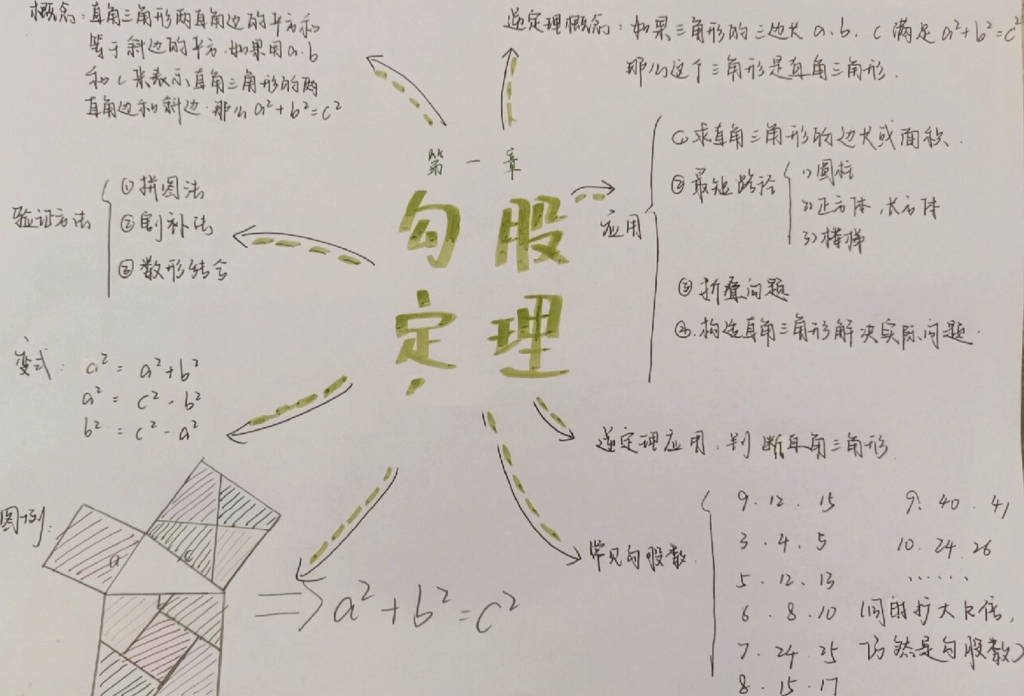 概念：直角三角形两直角边的平方和
等于斜边的平方.如果用a.b
和c来表示直角三角形的两
直角边和斜边.那么a²+b²=c²
逆定理概念：如果三角形的三边长a.b.c满足a²+b²=c²
那么这个三角形是直角三角形.
第一章
勾股
定理
验证方法
①拼图法
②割补法
③数形结合
应用
①求直角三角形的边长或面积.
②最短路径
1)圆柱
2)正方体、长方体
3)楼梯
③折叠问题
④.构造直角三角形解决实际问题.
变式：a²=a²+b²
a²=c²-b²
b²=c²-a²
逆定理应用：判断直角三角形
图例：
a
c
b
⇒a²+b²=c²
常见勾股数
9.12.15
3.4.5
5.12.13
6.8.10
7.24.25
8.15.17
9.40.41
10.24.26
......
(同时扩大k倍,
仍然是勾股数)